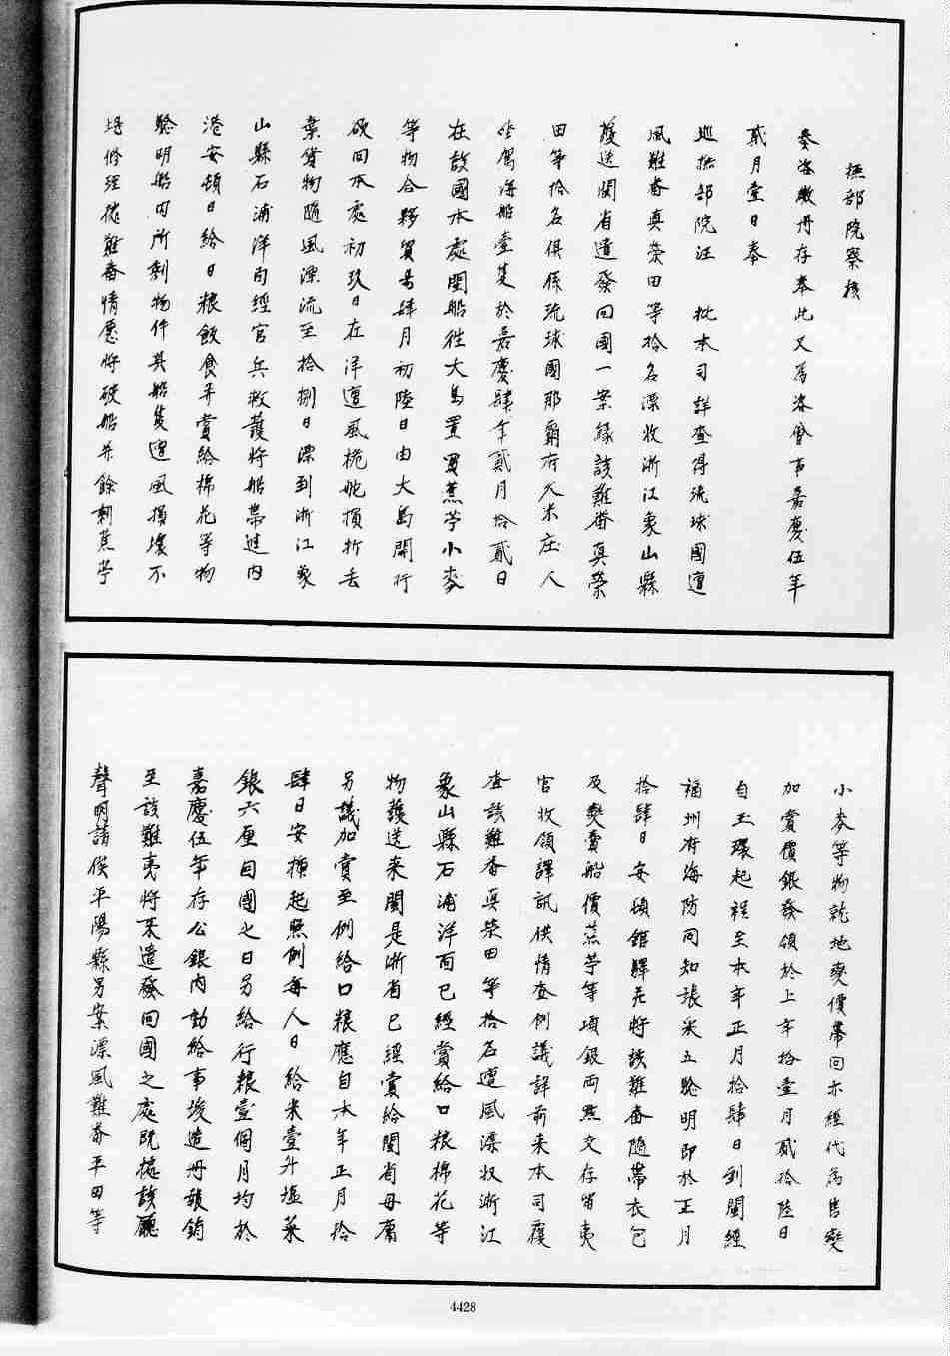 撫部院察核
奏咨繳冊存奉此又為咨會事嘉慶伍年
貳月壹日奉
巡撫部院汪　批本司詳查得琉球國遭
風難番真榮田等拾名漂收浙江象山縣
護送閩省遣發回國一案緣該難番真榮
田等拾名俱係琉球國那霸府久米庄人
坐駕海船壹隻於嘉慶肆年貳月拾貳日
在該國本處開船往大島置買蕉苧小麥
等物合夥貿易肆月初陸日由大島開行
欲回本處初玖日在洋遭風桅舵損折丟
棄貨物隨風漂流至拾捌日漂到浙江象
山縣石浦洋面經官兵救護將船帶進內
港安頓日給日粮飯食并賞給棉花等物
驗明船內所剩物件其船隻遭風損壞不
堪修理據難番情愿將破船并餘剩蕉苧
小麥等物就地變價帶回亦經代為售變
加賞價銀發領於上年拾壹月貳拾陸日
自玉環起程至本年正月拾肆日到閩經
福州府海防同知張采五驗明即於正月
拾肆日安頓館驛并將該難番隨帶衣包
及變賣船價蕉苧等項銀兩點交存留夷
官收領譯訊供情查例議詳前來本司覆
查該難番真榮田等拾名遭風漂收浙江
象山縣石浦洋面已經賞給口粮棉花等
物護送來閩是浙省已經賞給閩省毋庸
另議加賞至例給口粮應自本年正月拾
肆日安插起照例每人日給米壹升塩菜
銀六厘回國之日另給行粮壹個月均於
嘉慶伍年存公銀內動給事竣造冊報銷
至該難夷將來遣發回國之處既據該廳
聲明請俟平陽縣另案漂風難番平田等
4428